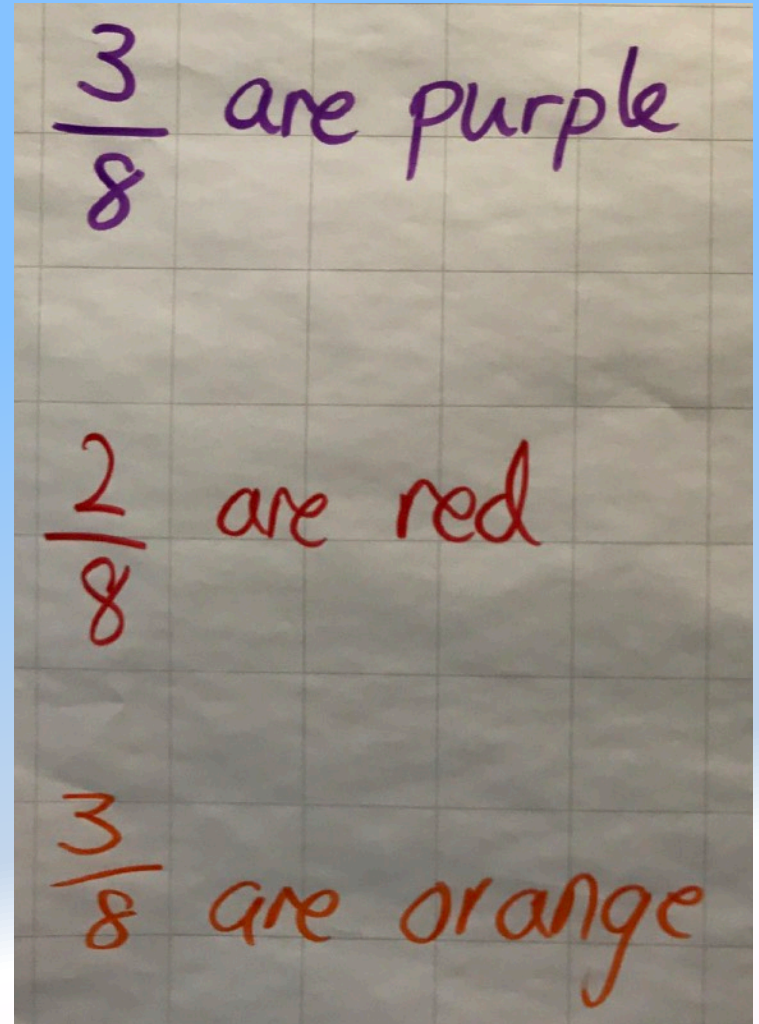 3/8 are purple
2/8 are red
3/8 are orange